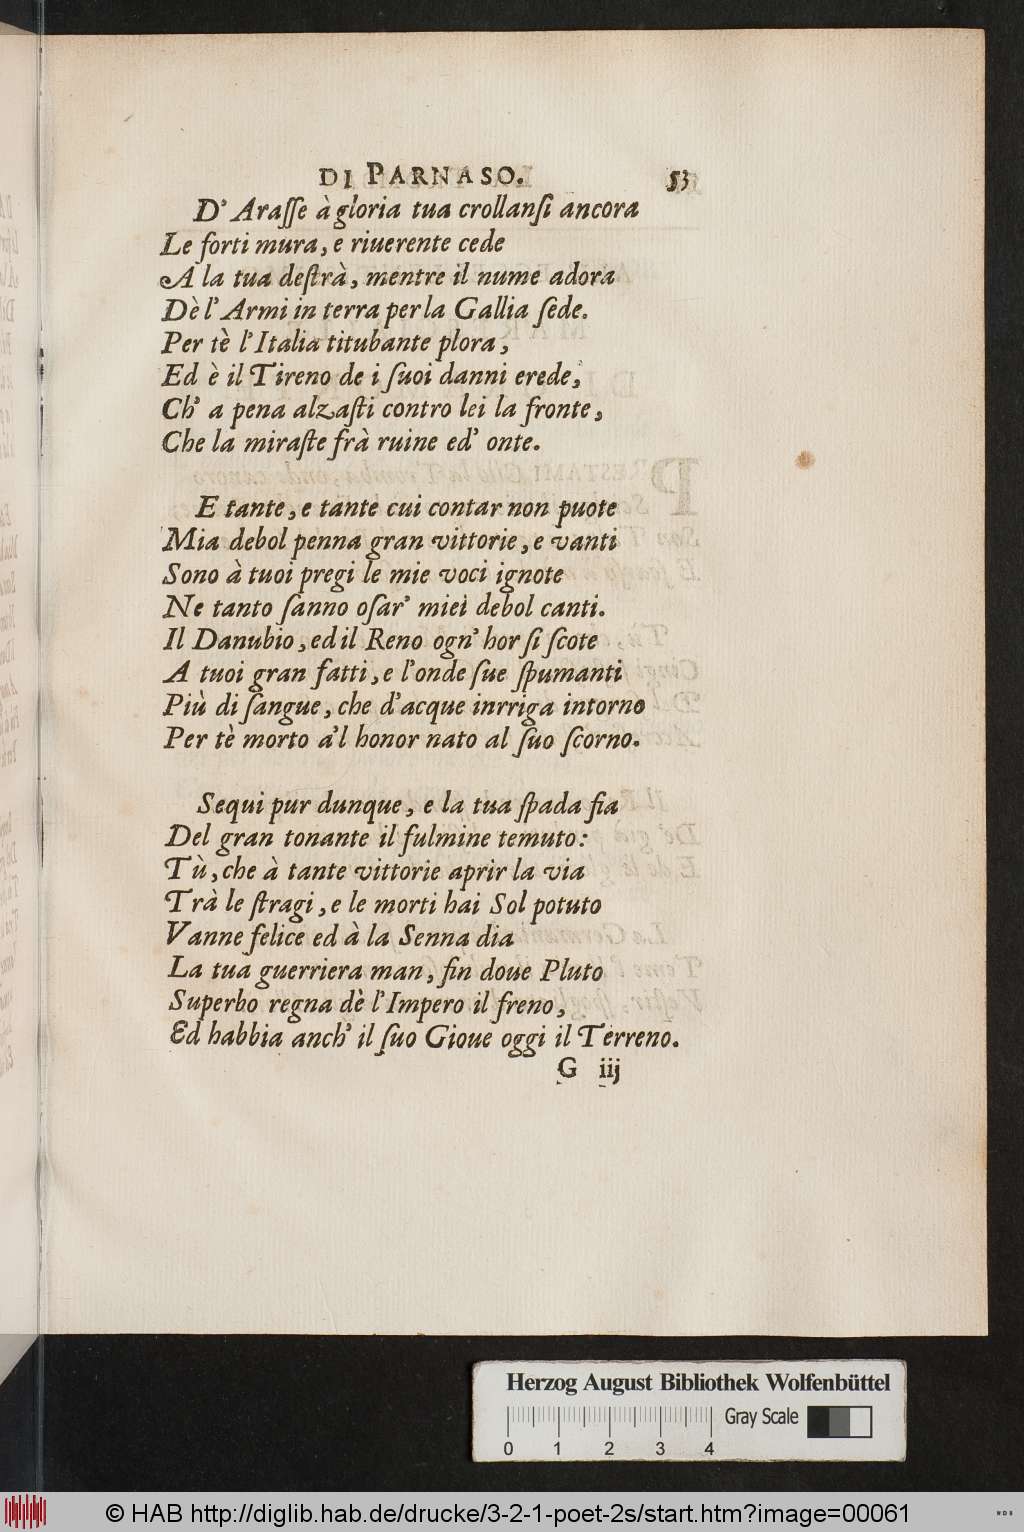 DI PARNASO. 53
D' Araſſe à gloria tua crollanſi ancora
Le forti mura, e riuerente cede
A la tua deſtrà, mentre il nume adora
Dè l' Armi in terra per la Gallia ſede.
Per tè l'Italia titubante plora,
Ed è il Tireno de i ſuoi danni erede,
Ch' a pena alzaſti contro lei la fronte,
Che la miraſte frà ruine ed' onte.
E tante, e tante cui contar non puote
Mia debol penna gran vittorie, e vanti
Sono à tuoi pregi le mie voci ignote
Ne tanto ſanno oſar' miei debol canti.
Il Danubio, ed il Reno ogn' hor ſi ſcote
A tuoi gran fatti, e l'onde ſue ſpumanti
Più di ſangue, che d'acque inrriga intorno
Per tè morto a'l honor nato al ſuo ſcorno.
Sequi pur dunque, e la tua ſpada fia
Del gran tonante il fulmine temuto:
Tù, che à tante vittorie aprir la via
Trà le ſtragi, e le morti hai Sol potuto
Vanne felice ed à la Senna dia
La tua guerriera man, fin doue Pluto
Superbo regna dè l'Impero il freno,
Ed habbia anch' il ſuo Gioue oggi il Terreno.
G iij
Herzog August Bibliothek Wolfenbüttel
Gray Scale
0 1 2 3 4
© HAB http://diglib.hab.de/drucke/3-2-1-poet-2s/start.htm?image=00061